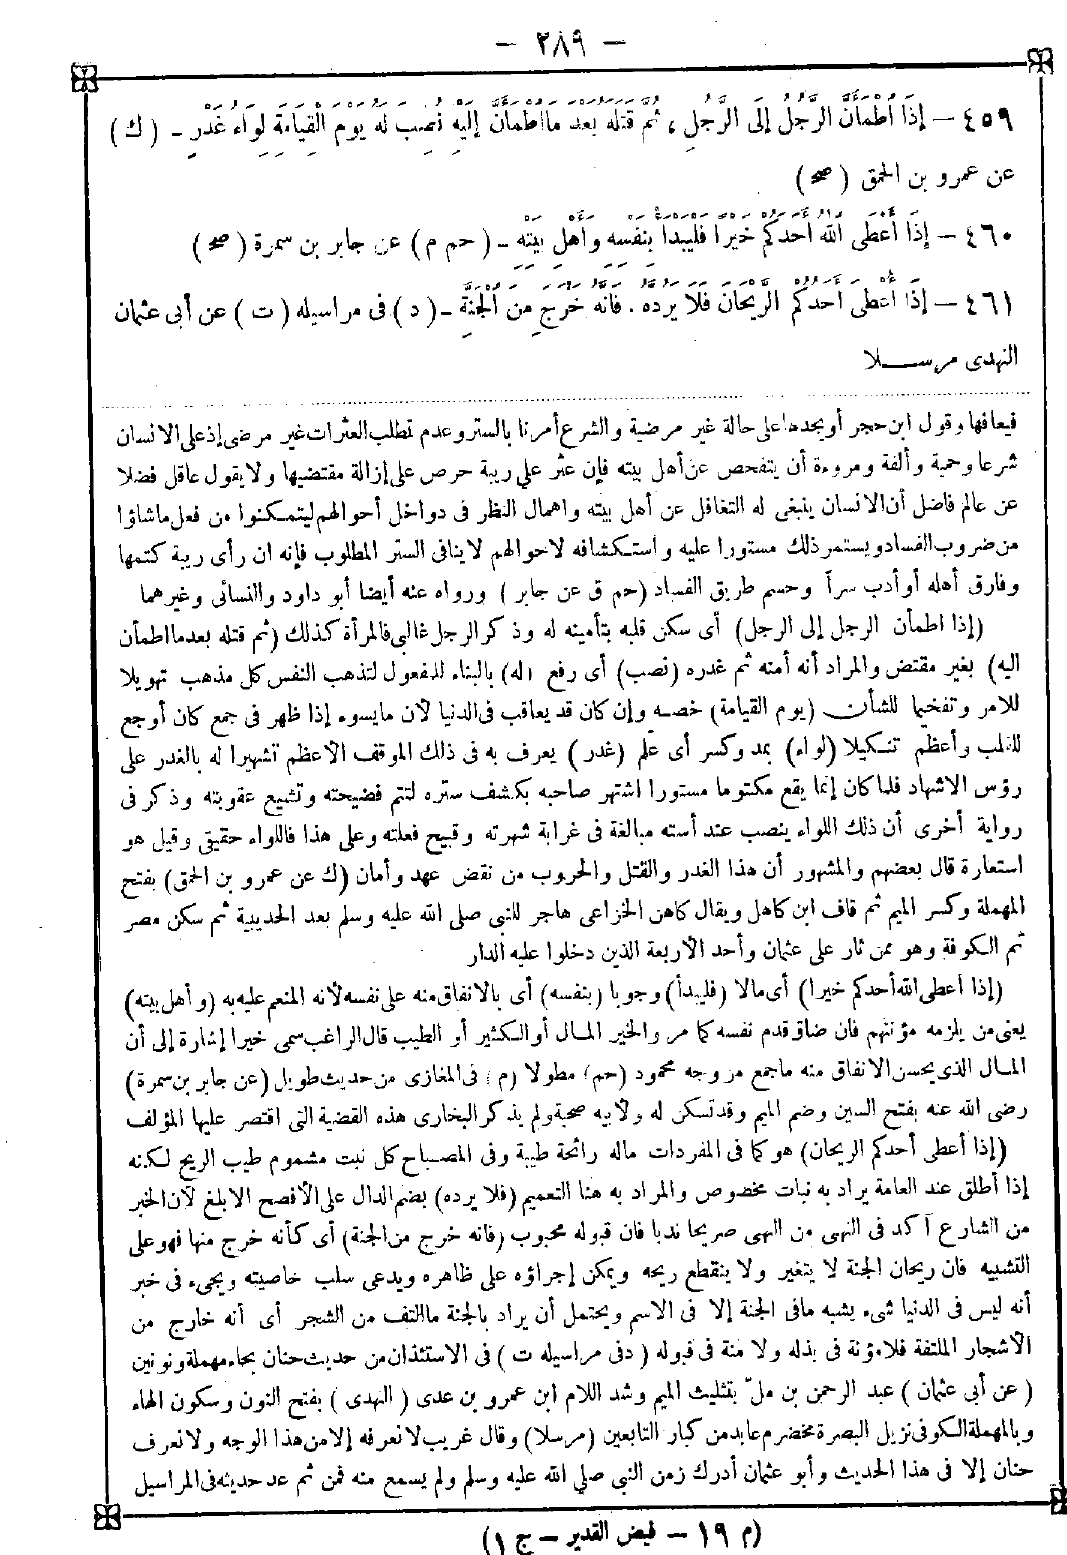 - ٢٨٩ -
٤٥٩ - إِذَا اطْمَأَنَّ الرَّجُلُ إِلَى الرَّجُلِ ، ثُمَّ قَتَلَهُ بَعْدَ مَا اطْمَأَنَّ إِلَيْهِ نُصِبَ لَهُ يَوْمَ الْقِيَامَةِ لِوَاءُ غَدْرٍ - ( ك )
عن عمرو بن الحمق ( صح )
٤٦٠ - إِذَا أَعْطَى اللهُ أَحَدَكُمْ خَيْرًا فَلْيَبْدَأْ بِنَفْسِهِ وَأَهْلِ بَيْتِهِ - ( حم م ) عن جابر بن سمرة ( صح )
٤٦١ - إِذَا أُعْطِىَ أَحَدُكُمُ الرَّيْحَانَ فَلَا يَرُدَّهُ . فَإِنَّهُ خَرَجَ مِنَ الْجَنَّةِ - ( د ) فى مراسيله ( ت ) عن أبى عثمان
النهدى مرسلا
فيعافها وقول ابن حجر أو يجدها على حالة غير مرضية والشرع أمرنا بالستر وعدم تطلب العثرات غير مرضى إذ على الانسان
شرعا وحمية وألفة ومروءة أن يتفحص عن أهل بيته فإن عثر على ريبة حرص على إزالة مقتضيها ولا يقول عاقل فضلا
عن عالم فاضل أن الانسان ينبغى له التغافل عن أهل بيته واهمال النظر فى دواخل أحوالهم ليتمكنوا من فعل ماشاؤا
من ضروب الفساد ويستمر ذلك مستورا عليه واستكشافه لاحوالهم لاينافى الستر المطلوب فإنه ان رأى ريبة كتمها
وفارق أهله أو أدب سراً وحسم طريق الفساد (حم ق عن جابر ) ورواه عنه أيضا أبو داود والنسائى وغيرهما
(إذا اطمأن الرجل إلى الرجل) أى سكن قلبه بتأمينه له وذكر الرجل غالبى فالمرأة كذلك (ثم قتله بعد ما اطمأن
اليه) بغير مقتض والمراد أنه أمنه ثم غدره (نصب) أى رفع (له) بالبناء للمفعول لتذهب النفس كل مذهب تهويلا
للامر وتفخيما للشأن (يوم القيامة) خصه وإن كان قد يعاقب فى الدنيا لأن مايسوء إذا ظهر فى جمع كان أوجع
للقلب وأعظم تنكيلا (لواء) بمد وكسر أى علم (غدر) يعرف به فى ذلك الموقف الأعظم تشهيرا له بالغدر على
رؤس الاشهاد فلما كان إنما يقع مكتوما مستورا اشتهر صاحبه بكشف ستره لتتم فضيحته وتشيع عقوبته وذكر فى
رواية أخرى أن ذلك اللواء ينصب عند أسته مبالغة فى غرابة شهرته وقبيح فعلته وعلى هذا فاللواء حقيقى وقيل هو
استعارة قال بعضهم والمشهور أن هذا الغدر والقتل والحروب من نقض عهد وأمان (ك عن عمرو بن الحمق) بفتح
المهملة وكسر الميم ثم قاف ابن كاهل ويقال كاهن الخزاعى هاجر للنبى صلى الله عليه وسلم بعد الحديبية ثم سكن مصر
ثم الكوفة وهو ممن ثار على عثمان وأحد الأربعة الذين دخلوا عليه الدار
(إذا أعطى الله أحدكم خيرا) أى مالا (فليبدأ) وجوبا (بنفسه) أى بالانفاق منه على نفسه لأنه المنعم عليه به (وأهل بيته)
يعنى من يلزمه مؤنتهم فان ضاق قدم نفسه كما مر والخير المال أو الكثير أو الطيب قال الراغب سمى خيرا إشارة إلى أن
المال الذى يحسن الانفاق منه ماجمع من وجه محمود (حم) مطولا (م) فى المغازى من حديث طويل (عن جابر بن سمرة)
رضى الله عنه بفتح السين وضم الميم وقد تسكن له ولأبيه صحبة ولم يذكر البخارى هذه القضية التى اقتصر عليها المؤلف
(إذا أعطى أحدكم الريحان) هو كما فى المفردات ماله رائحة طيبة وفى المصباح كل نبت مشموم طيب الريح لكنه
إذا أطلق عند العامة يراد به نبات مخصوص والمراد به هنا التعميم (فلا يرده) بضم الدال على الأفصح الابلغ لأن الخبر
من الشارع آكد فى النهى من النهى صريحا ندبا فان قبوله محبوب (فانه خرج من الجنة) أى كأنه خرج منها فهو على
التشبيه فان ريحان الجنة لا يتغير ولا ينقطع ريحه ويمكن إجراؤه على ظاهره ويدعى سلب خاصيته ويجىء فى خبر
أنه ليس فى الدنيا شىء يشبه مافى الجنة إلا فى الاسم ويحتمل أن يراد بالجنة ماالتف من الشجر أى أنه خارج من
الأشجار الملتفة فلا مؤنة فى بذله ولا منة فى قبوله ( د فى مراسيله ت ) فى الاستئذان من حديث حنان بحاء مهملة ونونين
( عن أبى عثمان ) عبد الرحمن بن ملّ بتثليث الميم وشد اللام ابن عمرو بن عدى ( النهدى ) بفتح النون وسكون الهاء
وبالمهملة الكوفى نزيل البصرة مخضرم عابد من كبار التابعين (مرسلا) وقال غريب لا نعرفه إلا من هذا الوجه ولا نعرف
حنان إلا فى هذا الحديث وأبو عثمان أدرك زمن النبى صلى الله عليه وسلم ولم يسمع منه فمن ثم عد حديثه فى المراسيل
(م ١٩ - فيض القدير - ج ١)